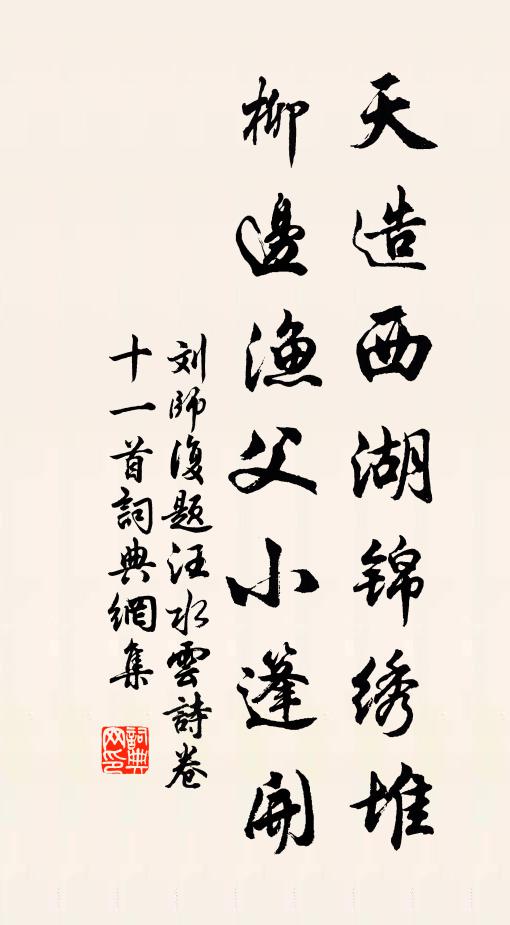 天造西湖锦绣堆
柳邊漁父小篷開
刘師復题汪水雲詩卷
十一首詞典網集
詞典网印